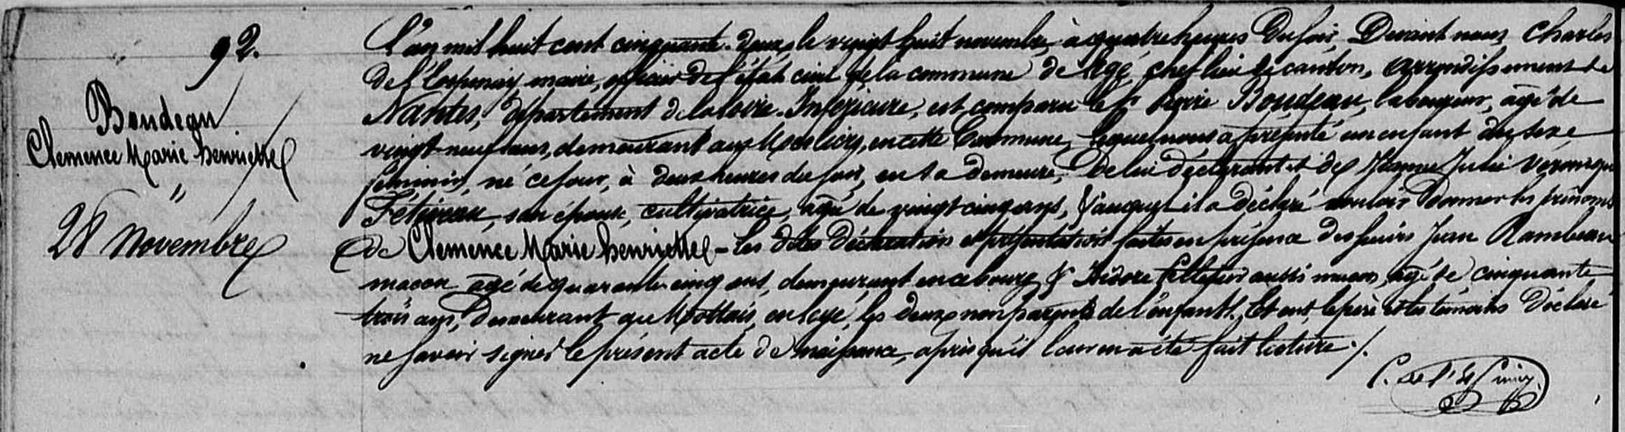 92.
Boudeau
Clemence Marie henriette
"
28 Novembre
L'an mil huit cent cinquante-deux, le vingt huit novembre, à quatre heures du soir, Devant nous Charles
de l'Espinay, maire, officier de l'état civil de la commune de Legé, chef lieu de canton, arrondissement de
Nantes, département de la loire-Inférieure, est comparu le Sr Pierre Boudeau, laboureur, âgé de
vingt neuf ans, demeurant aux en cette Commune, lequel nous a présenté un enfant du sexe
féminin, né ce jour, à deux heures du soir, en sa demeure, De lui déclarant et de Jeanne Julie Véronique
Fétiveau, son épouse, cultivatrice, âgée de vingt cinq ans, & auquel il a déclaré vouloir donner les prénoms
de Clemence Marie henriette - les dites déclaration et présentation faites en présence des sieurs Jean Rambeau
maçon âgé de quarante cinq ans, demeurant en ce bourg & Isidore Pelletier aussi maçon, âgé de cinquante
trois ans, demeurant au en Legé, les deux non parents de l'enfant. Et ont le père et les témoins déclaré
ne savoir signer le présent acte de naissance, après qu'il leur en a été fait lecture ./.
C. de l'Espinay